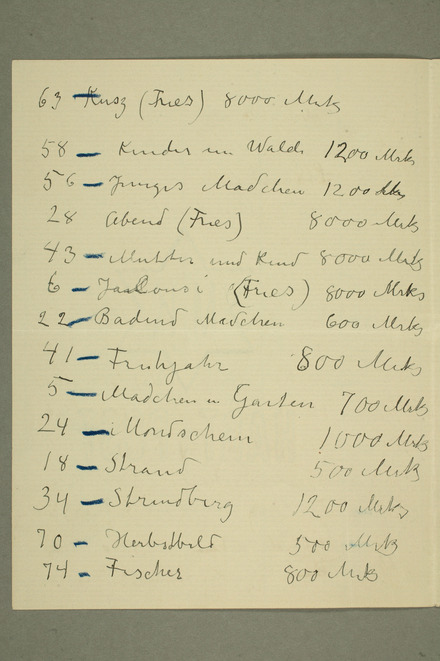 63 – Kusz (Fries) 8000 Mrk
58 – Kinder im Wald 1200 Mrk
56 – Junges Madchen 1200 Mrk
28 Abend (Fries) 8000 Mrk
43 – Mutter und Kind 8000 Mrk
6 – (Fries) 8000 Mrks
22 – Badend Madchen 600 Mrk
41 – Fruhjahr 800 Mrk
5 – Madchen u Garten 700 Mrk
24 – Mondschein 1000 Mrk
18 – Strand 500 Mrk
34 – Strindberg 1200 Mrk
70 – Herbstbild 500 Mrk
74 – Fischer 800 Mrk